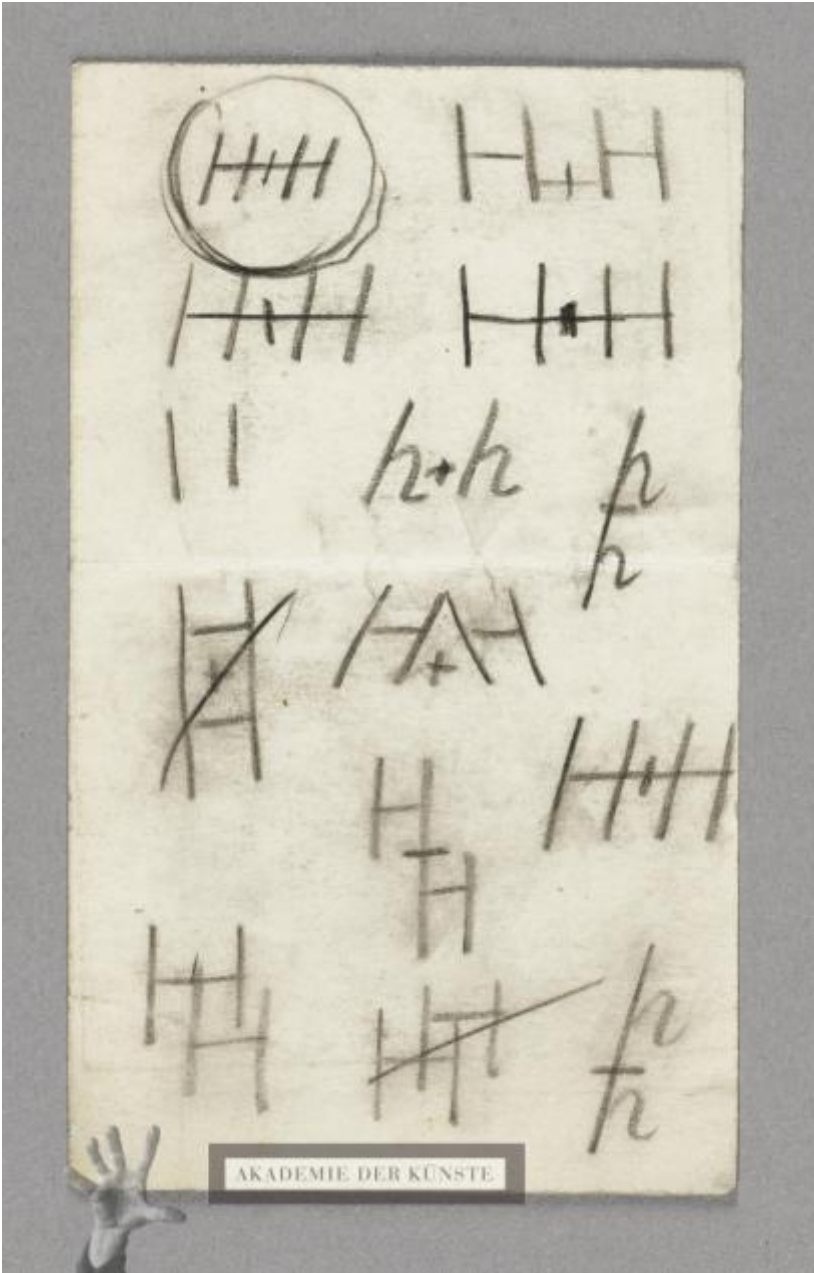 H+H H+H
H+H H+H
h+h h
h
H+H
H+H
H
H
H
H
h
h
AKADEMIE DER KÜNSTE